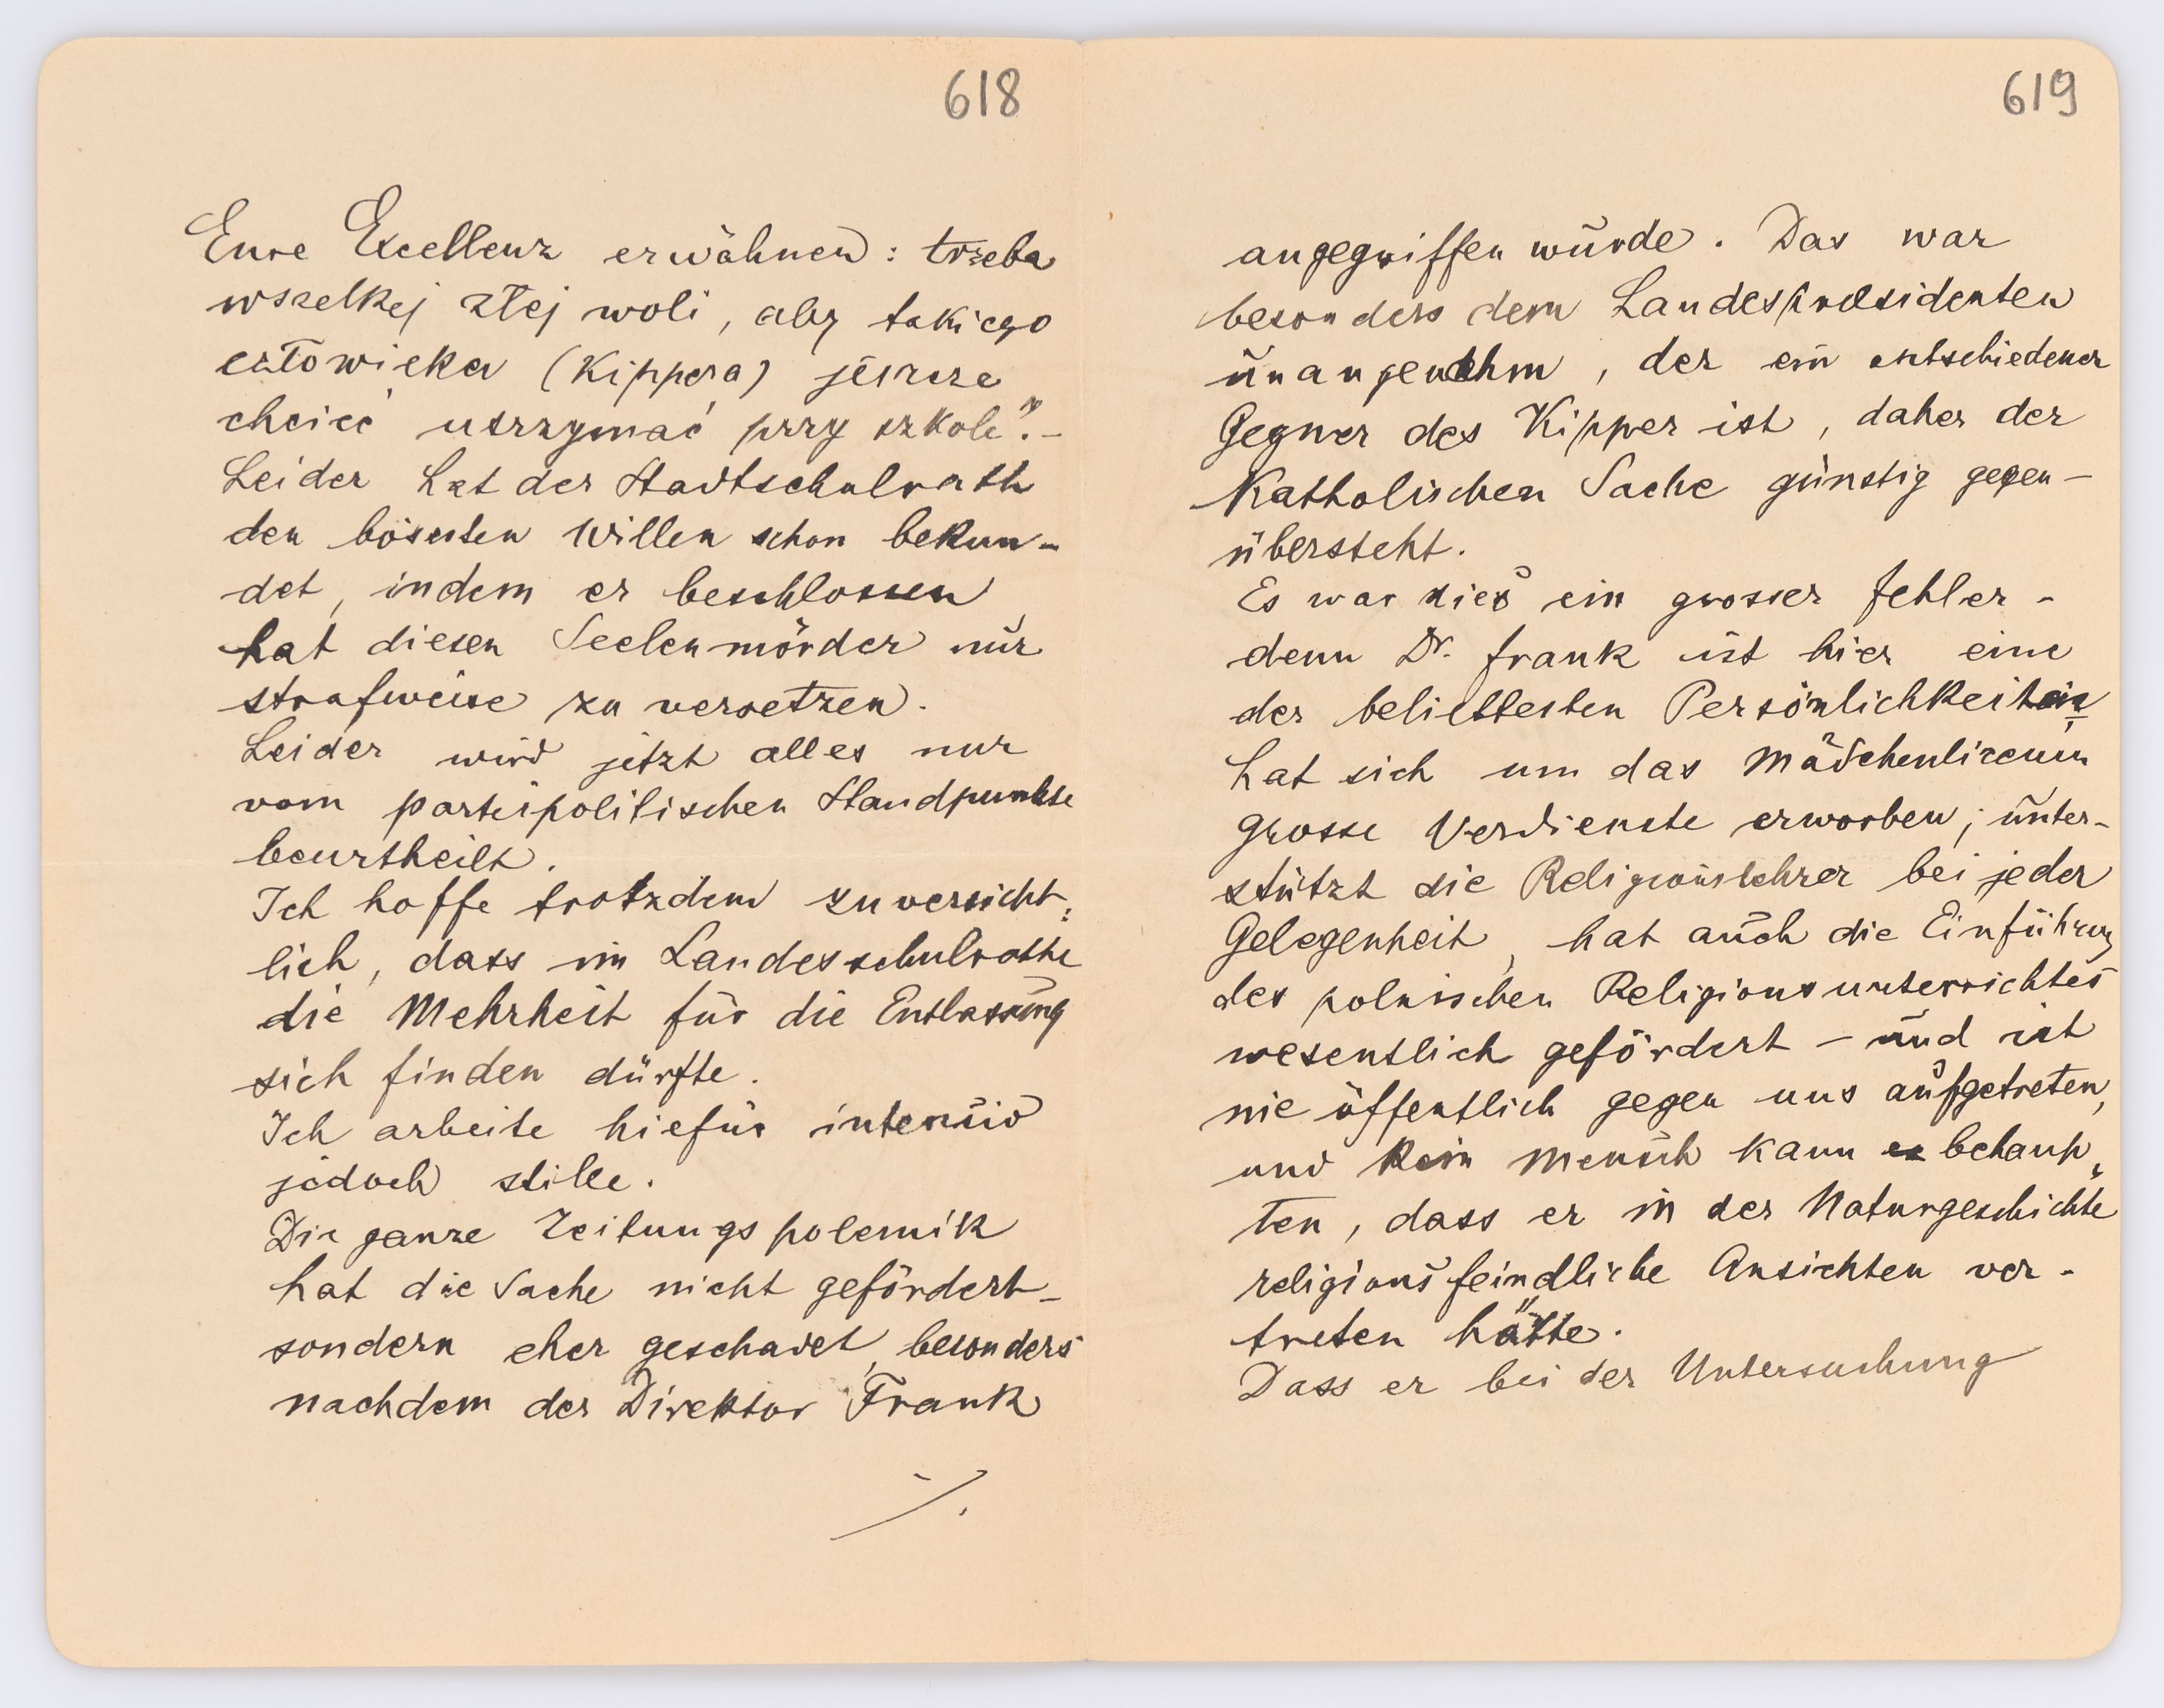 618
Eure Excellenz erwähnen: trzeba
wszelkej złej woli, aby takiego
człowieka (Kippera) jeszcze
chcieć utrzymać przy szkole".-
Leider hat der Stadtschulrath
den bösesten Willen schon bekun-
det, indem er beschlossen
hat diesen Seelenmörder nur
strafweise zu versetzen.
Leider wird jetzt alles nur
vom parteipolitischen Standpunkte
beurtheilt.
Ich hoffe trotzdem zuversicht:
lich, dass im Landesschulrathe
die Mehrheit für die Entlassung
sich finden dürfte.
Ich arbeite hiefür intensiv
jedoch stille.
Die ganze Zeitungspolemik
hat die Sache nicht gefördert-
sondern eher geschadet, besonders
nachdem der Direktor Frank
./.
619
angegriffen wurde. Das war
besonders dem Landespræsidenten
unangenehm, der ein entschiedener
Gegner des Kipper ist, daher der
Katholischen Sache günstig gegen-
übersteht.
Es war dies ein grosser Fehler-
denn Dr. Frank ist hier eine
der beliebtesten Persönlichkeiten
hat sich um das Mädchenlizeum
grosse Verdienste erworben; unter-
stützt die Religionslehrer bei jeder
Gelegenheit, hat auch die Einführung
des polnischen Religionsunterrichtes
wesentlich gefördert - und ist
nie öffentlich gegen uns aufgetreten,
und Kein Mensch kann es behaup„
ten, dass er in der Naturgeschichte
religionsfeindliche Ansichten ver-
treten hätte.
Dass er bei der Untersuchung